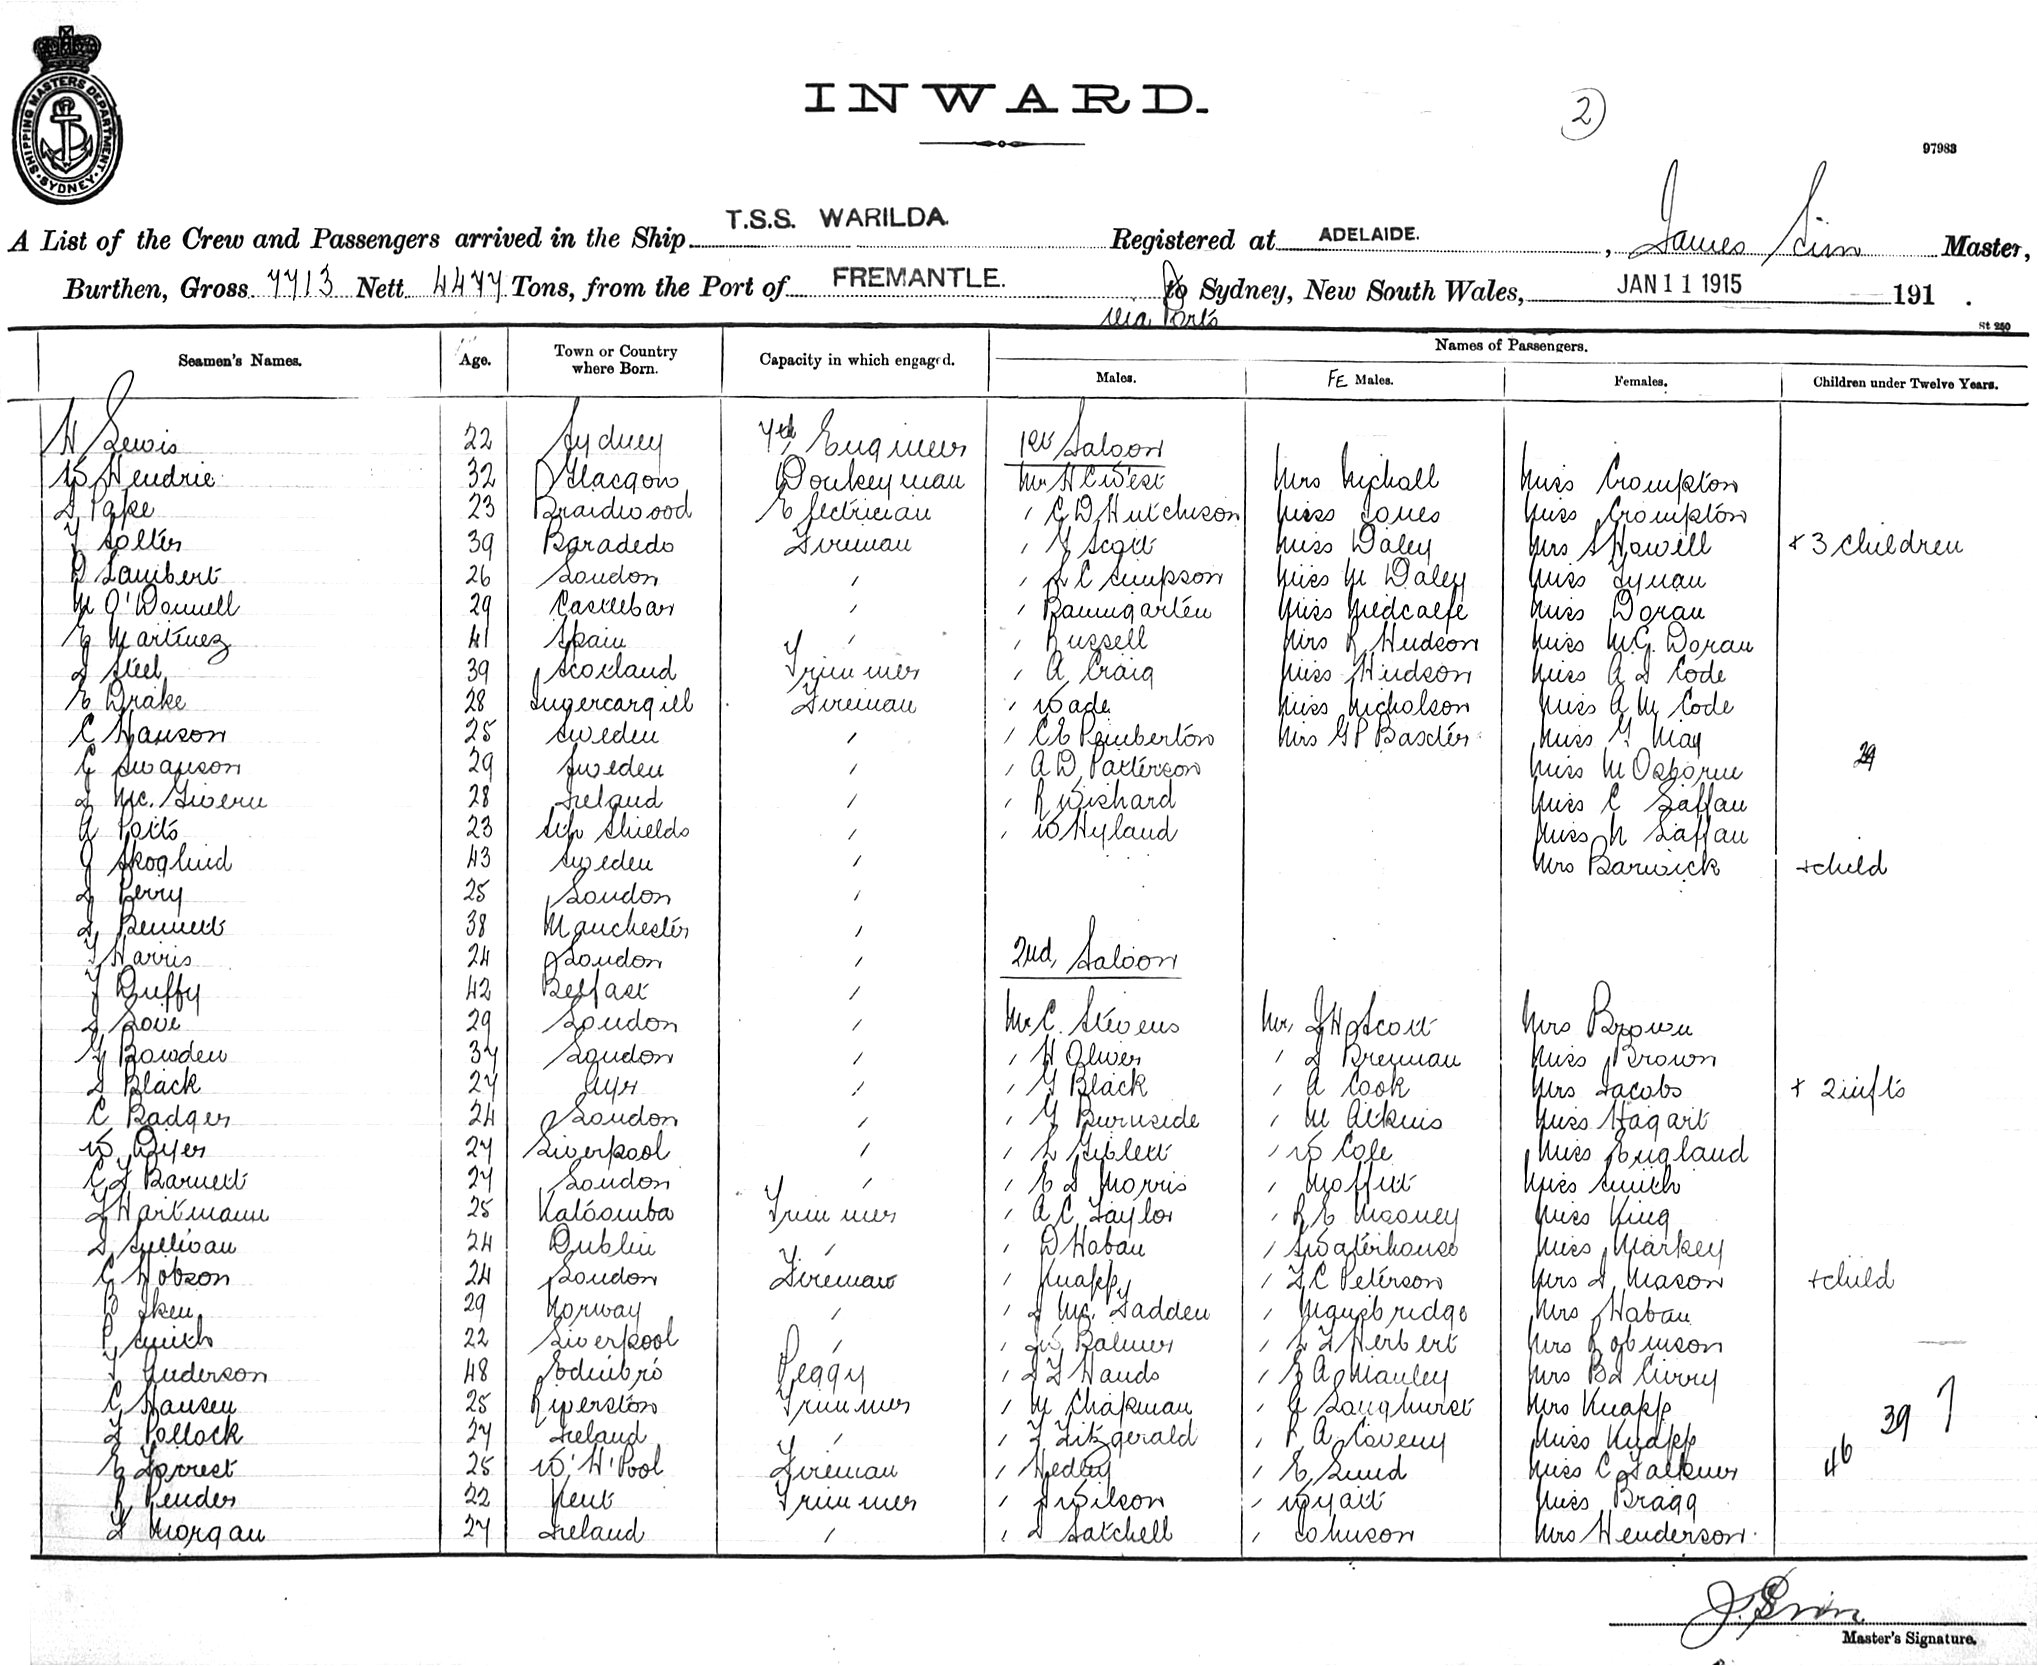 SHIPPING MASTERS DEPARTMENT
SYDNEY
INWARD.
2
97983
A List of the Crew and Passengers arrived in the Ship T.S.S. WARILDA Registered at ADELAIDE. , James Sim Master,
Burthen, Gross 7713 Nett 4477 Tons, from the Port of FREMANTLE. to Sydney, New South Wales, JAN 11 1915 191 .
via Ports
St 250
Seamen's Names. Age. Town or Country where Born. Capacity in which engaged. Names of Passengers.
Males. FE Males. Females. Children under Twelve Years.
H Lewis 22 Sydney 7th Engineer 1st Saloon
W Hendrie 32 Glasgow Donkeyman Mr H C West Mrs Nicholl Miss Crompton
D Pape 23 Braidwood Electrician " C D Hutchison Miss Jones Miss Crompton
T Solter 39 Baradedo Fireman " G Scott Miss Daley Mrs S Howell + 3 children
D Lambert 26 London " " L C Simpson Miss M Daley Miss Lynau
M O'Donnell 29 Castlebar " " Baumgarten Miss Medcalfe Miss Doran
E Martinez 41 Spain " " Russell Mrs R Hudson Miss M.G. Doran
J Steel 39 Scotland Trimmer " A Craig Miss Hudson Miss A I Code
E Drake 28 Invercargill Fireman " Wade Miss Nicholson Miss A M Code
C Hanson 25 Sweden " " C E Pemberton Mrs G P Baxter Miss G May
C Swanson 29 Sweden " " A D Patterson Miss M Osborne 29
J Mc. Givern 28 Ireland " " R Wishard Miss C Laffau
A Potts 23 Sth Shields " " W Hyland Miss N Laffau
J Skoglund 43 Sweden " Mrs Barwick + child
J Perry 25 London "
J Bennett 38 Manchester "
T Harris 24 London " 2nd Saloon
J Duffy 42 Belfast "
J Love 29 London " Mr C. Stevens Mr. J H Scott Mrs Brown
G Bowden 37 London " " H Oliver " J Brennan Miss Brown
J Black 27 Ayr " " G Black " A Cook Mrs Jacobs + 2 infts
C Badger 24 London " " G Burnside " M Atkins Miss Hagart
W Dyer 27 Liverpool " " L Giblett " W Cole Miss England
C J Barnett 27 London " " E J Morris " Moffitt Miss Smith
J Hartmann 25 Katoomba Trimmer " A C Taylor " R E Mooney Miss King
J Sullivan 24 Dublin " " D Haban " S Waterhouse Miss Markey
C Hobson 24 London Fireman " Knapp " F C Peterson Mrs J Mason + child
B Sken 29 Norway " " J Mc. Fadden " Mousbridge Mrs Haban
P Smith 22 Liverpool " " W Balmer " L J Herbert Mrs Robinson
T Anderson 48 Edinbro Peggy " J F Hands " E A Manley Mrs B J Curry
C Hansen 25 Riverston Trimmer " M Chapman " G Longhurst Mrs Knapp 39 7
J Pollock 27 Ireland " " J Fitzgerald " R A Coveny Miss Knapp
E Forrest 25 W'H'Pool Fireman " Hedley " E Lund Miss C Falkner 46
R Pender 22 Kent Trimmer " S Wilson " Wyatt Miss Bragg
J Morgan 27 Ireland " " J Satchell " Johnson Mrs Henderson
J. Sim
Master's Signature.